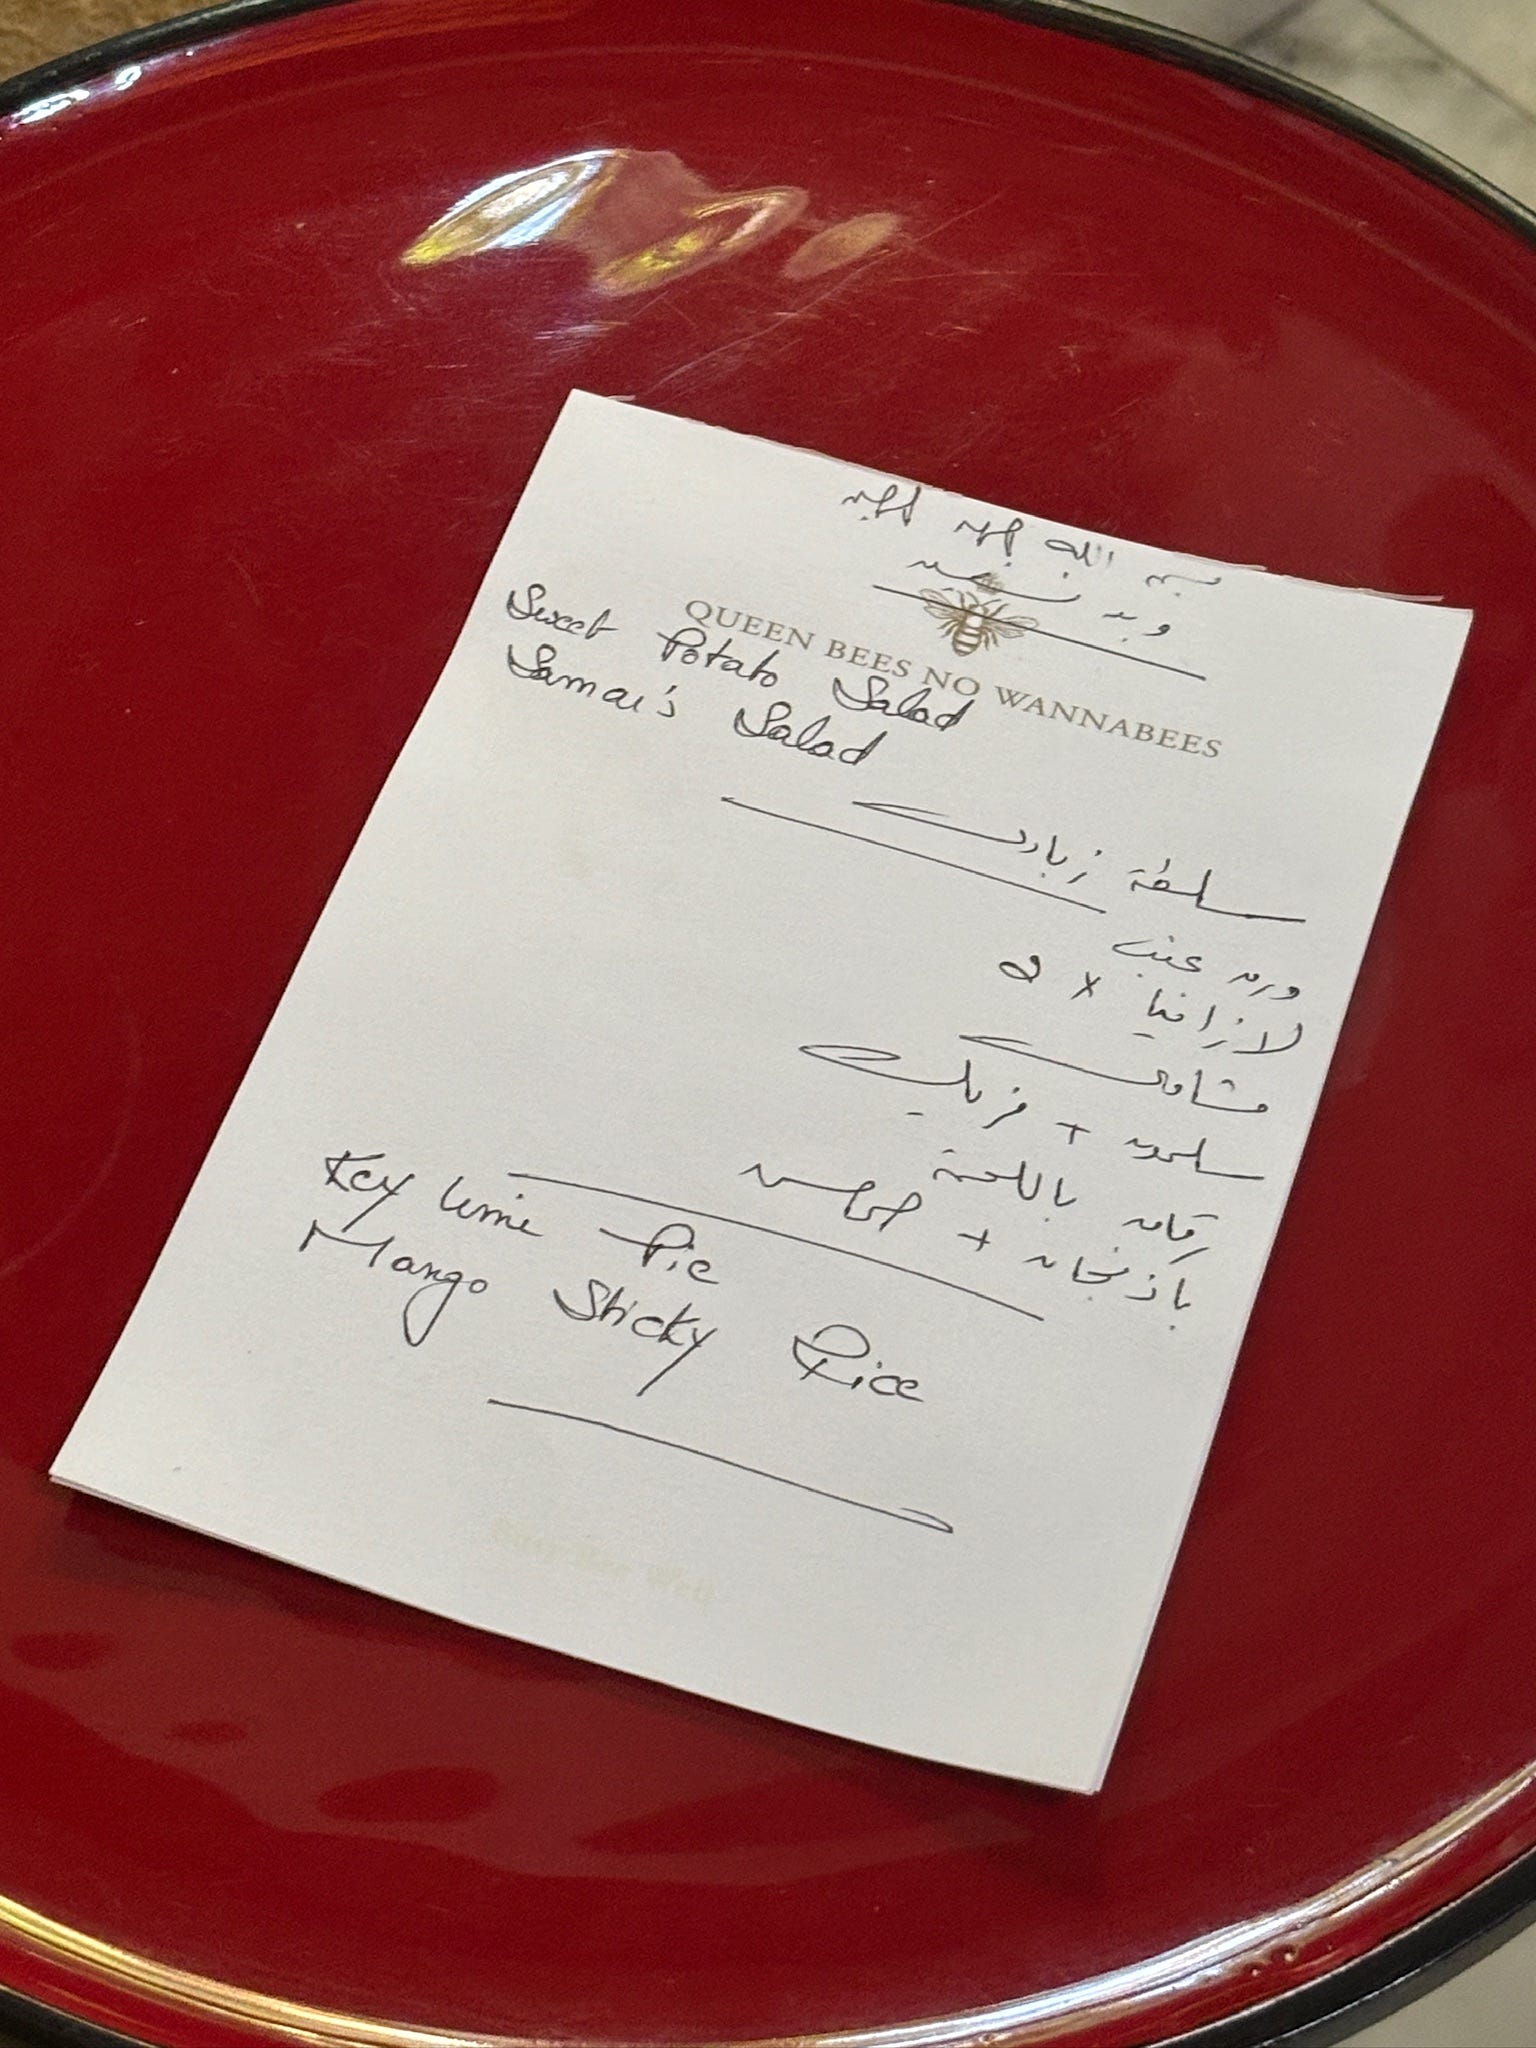 بسم الله الرحمن الرحيم
وبه نستعين
QUEEN BEES NO WANNABEES
Sweet Potato Salad
Samar's Salad
سلطة زبادي
ورق عنب
لازانيا x 2
مشاوي
سلمون + فريك
رقاق باللحمة
باذنجان + حمص
Key lime Pie
Mango Sticky Rice